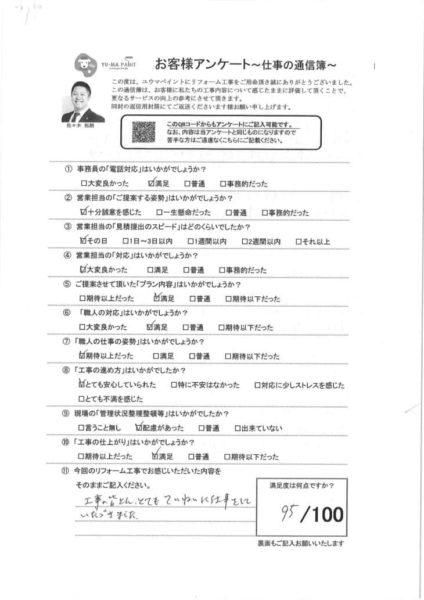 YU-MA PAINT
お客様アンケート～仕事の通信簿～
この度は、ユウマペイントにリフォーム工事をご用命頂き誠にありがとうございました。
この通信簿は、お客様に私たちの工事内容について感じたままに評価して頂くことで、
更なるサービスの向上の参考にさせて頂きます。
同封の返信用封筒にてご返送くださいます様お願い申し上げます。
佐々木 拓朗
このQRコードからもアンケートにご記入可能です。
なお、内容は当アンケートと同じものになりますので
苦手な方はご遠慮なくこちらにご記載ください。
① 事務員の「電話対応」はいかがでしょうか?
□大変良かった ☑満足 □普通 □事務的だった
② 営業担当の「ご提案する姿勢」はいかがでしょうか?
☑十分誠意を感じた □一生懸命だった □普通 □事務的だった
③ 営業担当の「見積提出のスピード」はどのくらいでしたか?
☑その日 □1日～3日以内 □1週間以内 □2週間以内 □それ以上
④ 営業担当の「対応」はいかがでしょうか?
☑大変良かった □満足 □普通 □事務的だった
⑤ ご提案させて頂いた「プラン内容」はいかがでしょうか?
□期待以上だった ☑満足 □普通 □期待以下だった
⑥ 「職人の対応」はいかがでしょうか?
□大変良かった ☑満足 □普通 □期待以下だった
⑦ 「職人の仕事の姿勢」はいかがでしょうか?
☑期待以上だった □満足 □普通 □期待以下だった
⑧ 「工事の進め方」はいかがでしたか?
☑とても安心していられた □特に不安はなかった □対応に少しストレスを感じた
□とても不満を感じた
⑨ 現場の「管理状況整理整頓等」はいかがでしたか?
□言うこと無し ☑配慮があった □普通 □出来ていない
⑩ 「工事の仕上がり」はいかがでしょうか?
□期待以上だった ☑満足 □普通 □期待以下だった
⑪ 今回のリフォーム工事でお感じいただいた内容を
そのままご記入ください。
工事の皆さん、とても ていねいに仕事をして
いただきました。
満足度は何点ですか?
95/100
裏面もご記入お願いいたします